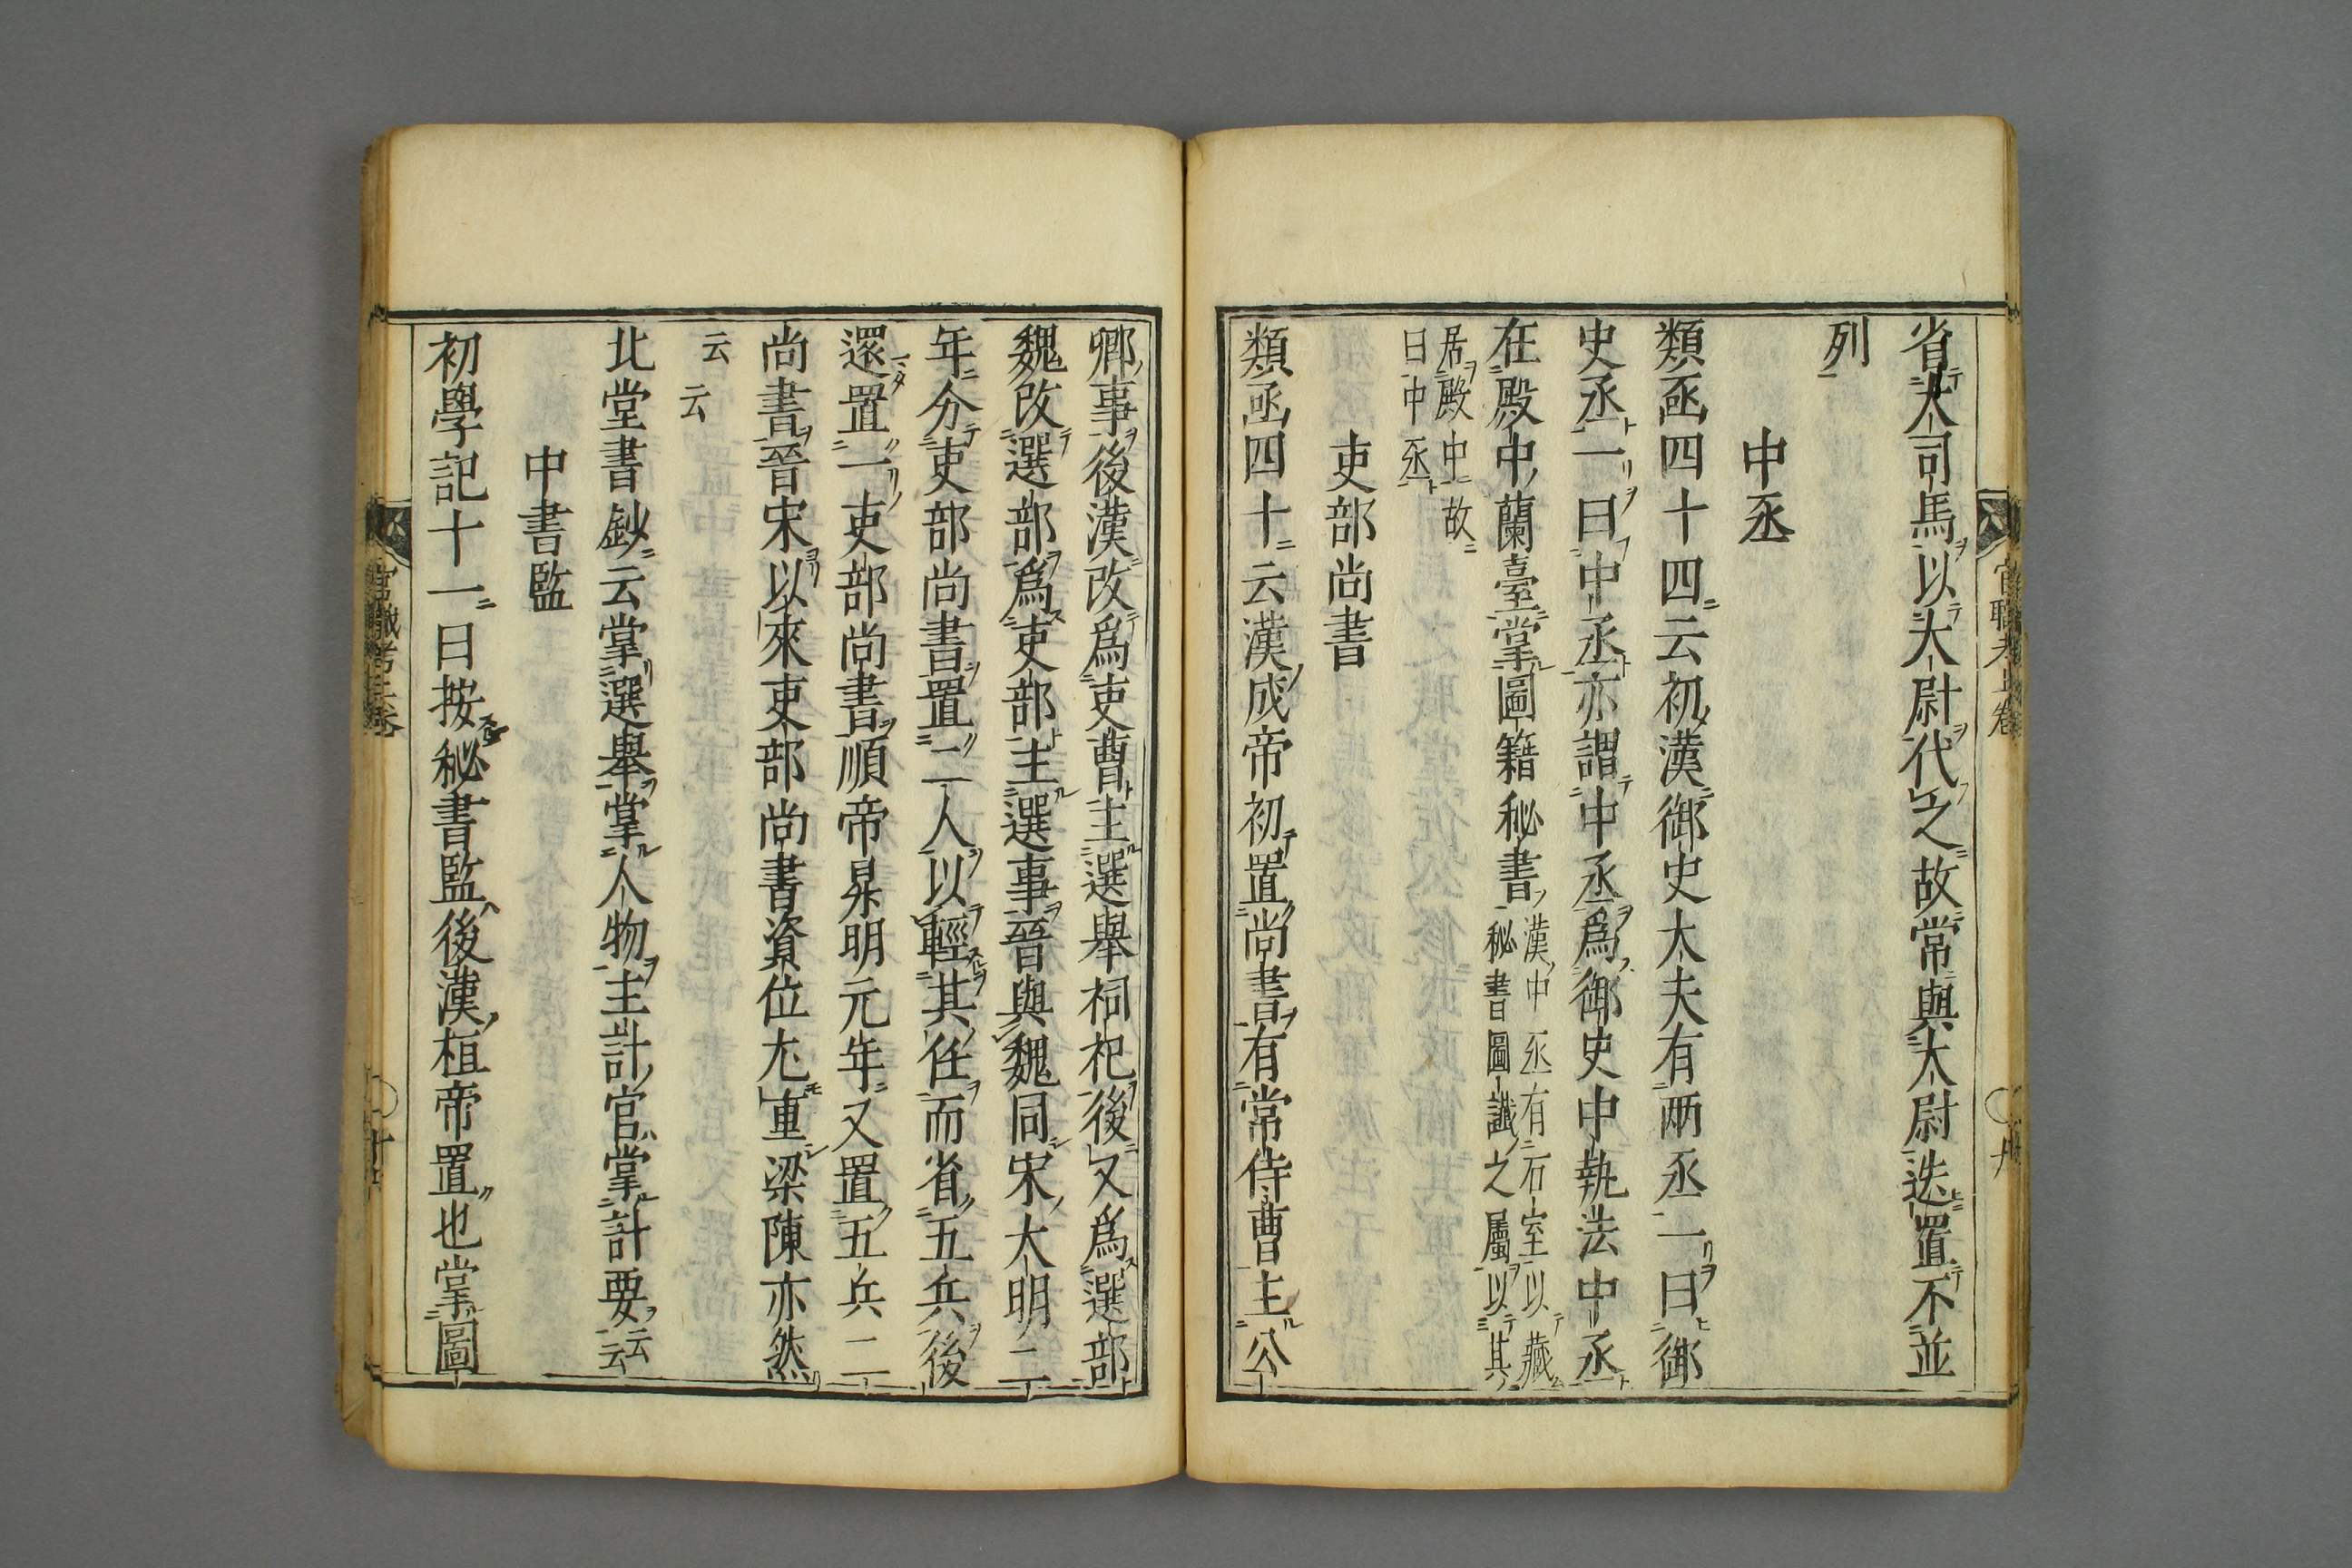 省大司馬以大尉代之故常與大尉迭置不並
列
中丞
類函四十四云初漢御史大夫有兩丞一曰御
史丞一曰中丞亦謂中丞爲御史中執法中丞
在殿中蘭臺掌圖籍秘書漢中丞有石室以藏
秘書圖讖之屬以其
居殿中故
曰中丞
吏部尚書
類函四十云漢成帝初置尚書有常侍曹主公
卿事後漢改爲吏曹主選舉祠祀後又爲選部
魏改選部爲吏部主選事晉與魏同宋大明二
年分吏部尚書置二人以輕其任而省五兵後
還置一吏部尚書順帝昇明元年又置五兵二
尚書晉宋以來吏部尚書資位尤重梁陳亦然
云云
北堂書鈔云掌選舉掌人物主計官掌計要云云
中書監
初學記十一曰按秘書監後漢桓帝置也掌圖
官職考上卷